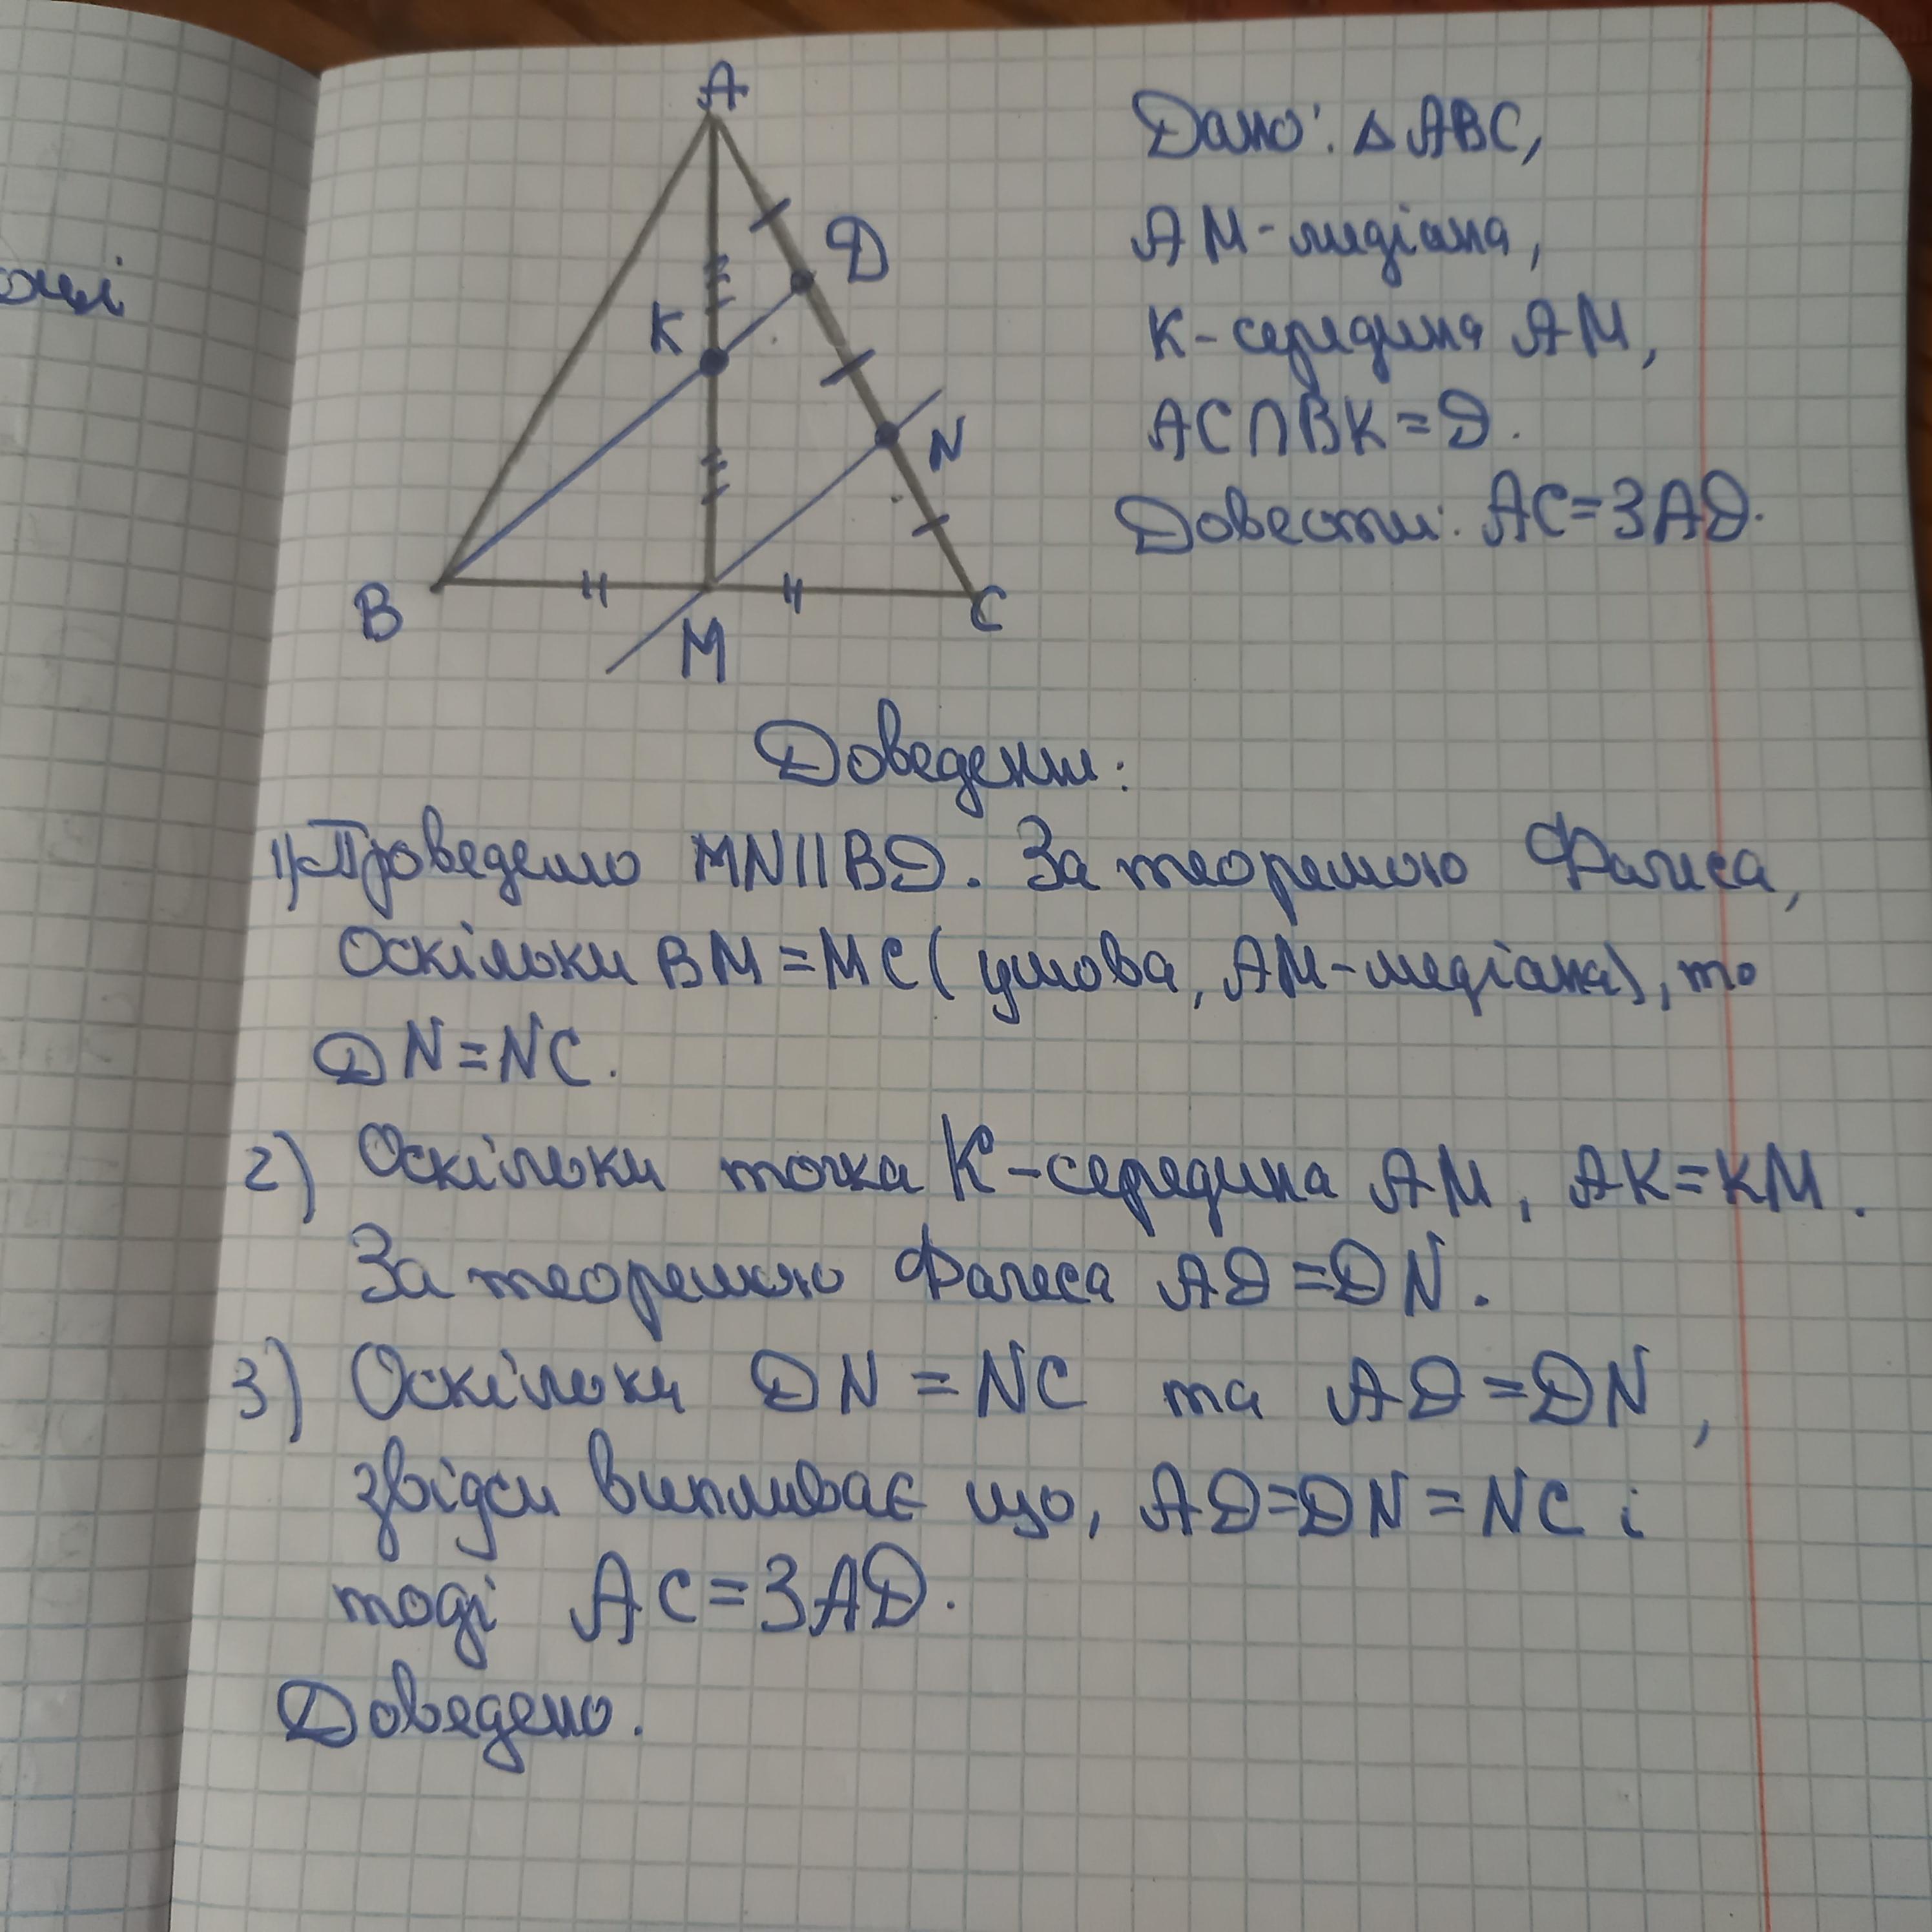 A
Дано: △ABC,
D
AM-медіана,
K
K-середина AM,
N
AC∩BK=D.
Довести: AC=3AD.
B
M
C
Доведення:
1) Проведемо MN||BD. За теоремою Фалеса,
Оскільки BM=MC (умова, AM-медіана), то
DN=NC.
2) Оскільки точка K-середина AM, AK=KM.
За теоремою Фалеса AD=DN.
3) Оскільки DN=NC та AD=DN,
звідси випливає що, AD=DN=NC і
тоді AC=3AD.
Доведено.